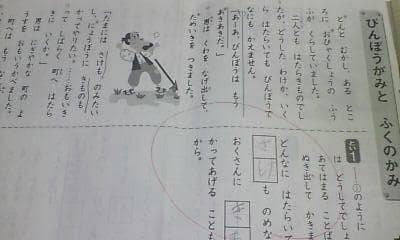 びんぼうがみと ふくのかみ
どんと むかし、ある とこ
ろに おひゃくしょうの ふう
ふが くらしていました。
二人とも はたらきものでし
たが、どうした わけか、いく
ら はたらいても びんぼうで
なにも かえません。
「あーあ、びんぼうは もう
おきあきた。」
男は くわを なげ出して、
ためいきを つきました。
「たまには さけも のみたい
し、にょうぼうに きものも
かってやりたい。
って しばらく 町に はたら
きに いくか。」
男は にぎやかな 町の よ
うすを おもいうかべました。
とい1
①のように
は どうしてでしょ
あてはまる ことば
ぬき出して かきま
どんなに はたらいて
さけ
も のめな
おくさんに
きも
かってあげる ことも
から。